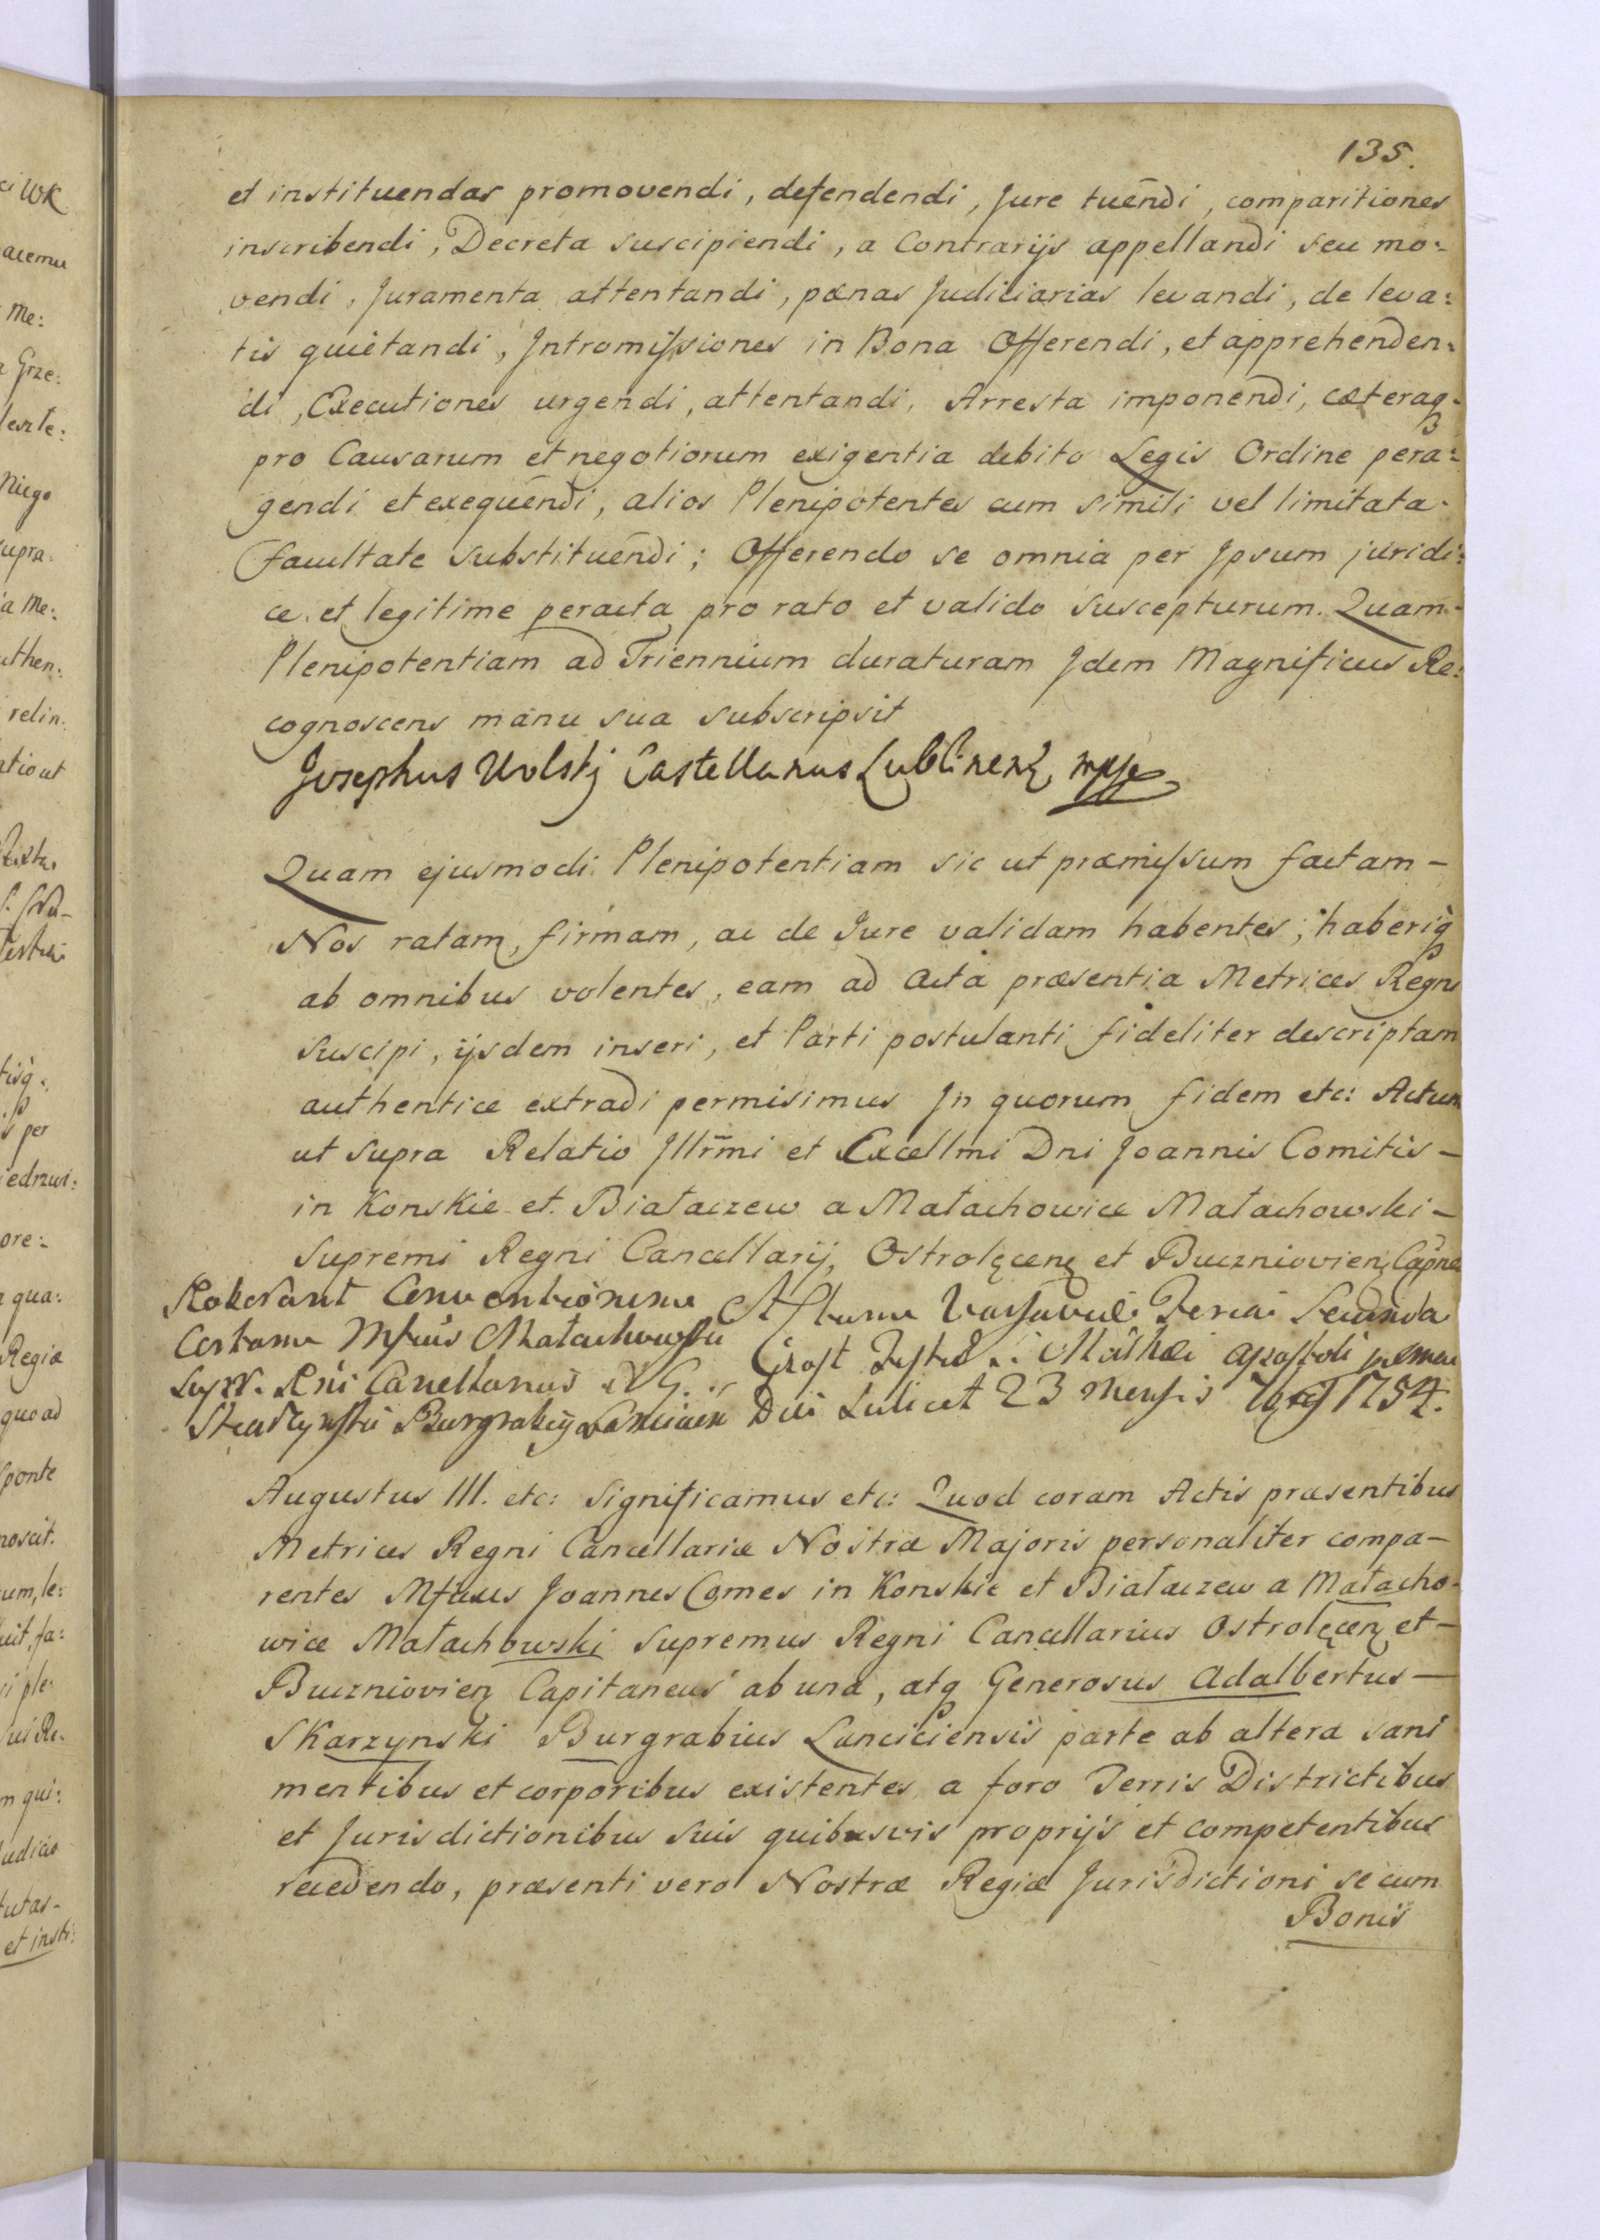 135.
et instituendas promovendi, defendendi, Jure tuēndi, comparitiones
inscribendi, Decreta suscipiendi, a Contrarijs appellandi seu mo:
vendi, Juramenta attentandi, pœnas Judiciarias levandi, de leva:
tis quietandi, Intromissiones in Bona Offerendi, et apprehenden:
di, Executiones urgendi, attentandi, Arresta imponendi, cæteraq
pro Causarum et negotiorum exigentia debito Legis Ordine pera:
gendi et exequēndi, alios Plenipotentes cum simili vel limitata
facultate substituēndi; Offerendo se omnia per Ipsum juridi:
ce et legitime peracta pro rato et valido suscepturum. Quam
Plenipotentiam ad Triennium duraturam Idem Magnificus Re:
cognoscens manu sua subscripsit
Josephus Wolskj Castellanus Lublinens mpp
Quam ejusmodi Plenipotentiam sic ut præmissum factam –
Nos ratam, firmam, ac de Jure validam habentes, haberiq
ab omnibus volentes, eam ad Acta præsentia Metrices Regni
suscipi, ijsdem inseri, et Parti postulanti fideliter descriptam
authentice extradi permisimus In quorum fidem etc: Actum
ut supra Relatio Illrmi et Excellmi Dni Joannis Comitis –
in Konskie et Białaczew a Małachowice Małachowski –
Supremi Regni Cancellarij, Ostrolęcens et Bucznioviens Capnei
Roborant Conventionem
certam Mfcus Małachowski
Supr. Rni Cancellarius et G.
Skarzynski Burgrabius Lanicien
Actum Varsaviæ Feria Secunda
Crast Festi S. Mathæi Apostoli
Die Scilicet 23 Mensis 7bris 1754.
Augustus III. etc: Significamus etc: Quod coram Actis præsentibus
Metrices Regni Cancellariæ Nostræ Majoris personaliter compa–
rentes Mfcus Joannes Comes in Konskie et Białaczew a Małacho–
wice Małachowski Supremus Regni Cancellarius Ostrolęcens et –
Bucznioviens Capitaneus ab una, atq Generosus Adalbertus –
Skarzynski Burgrabius Lanciciensis parte ab altera sani
mentibus et corporibus existentes a foro Terris Districtibus
et Jurisdictionibus suis quibusvis proprijs et competentibus
recedendo, præsenti vero Nostræ Regiæ Jurisdictioni se cum
Bonis